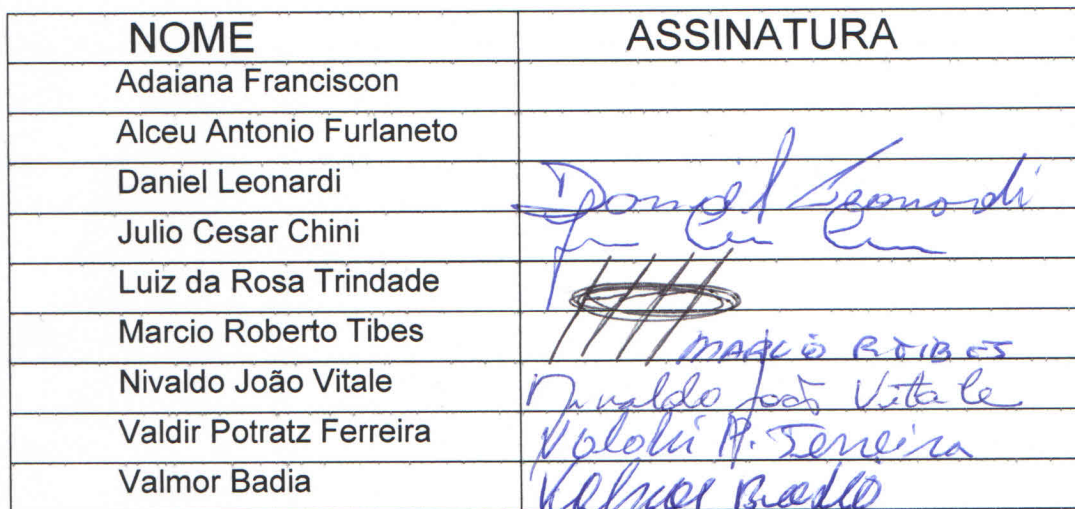 NOME ASSINATURA
Adaiana Franciscon
Alceu Antonio Furlaneto
Daniel Leonardi Daniel Leonardi
Julio Cesar Chini
Luiz da Rosa Trindade
Marcio Roberto Tibes MARCIO R TIBES
Nivaldo João Vitale Nivaldo João Vitale
Valdir Potratz Ferreira Valdir P. Ferreira
Valmor Badia Valmor Badia